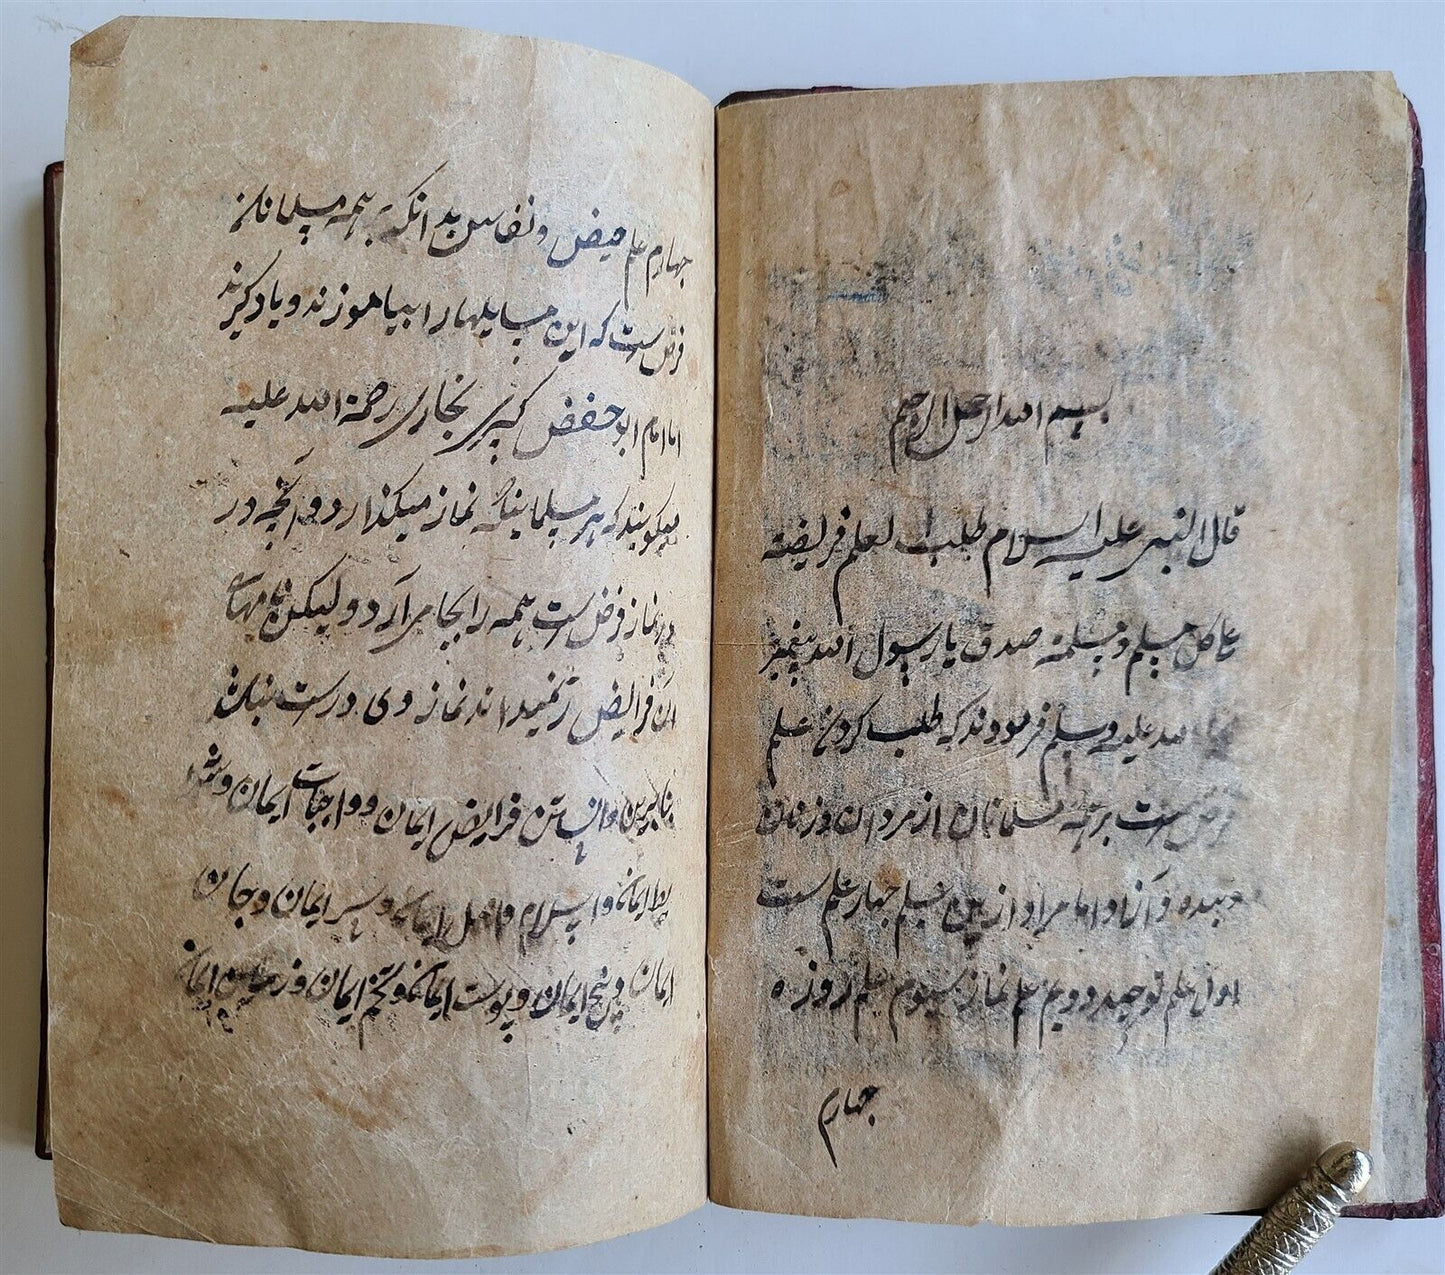 بسم الله الرحمن الرحیم
قال النبی علیه السلام طلب العلم فریضته
علی کل مسلم و مسلمته صدق یا رسول الله پیغمبر
صلی الله علیه وسلم فرمودند که طلب کردن علم
فرض است بر همه مسلمانان از مردان و زنان
و بنده و آزاد اما مراد از ین علم چهار علم ست
اول علم توحید دویم علم نماز سیوم علم روزه
چهارم
چهارم علم حیض و نفاس بدانکه بر همه مسلمانان
فرض است که این مسایلها را بیاموزند و یاد گیرند
اما امام ابو حفض کبیر بخاری رحمة الله علیه
میگویند که هر مسلمانیکه نماز میگذارد و آنچه در
در نماز فرض است همه را بجا می آرد و لیکن
این فرایض را نمیداند نماز وی درست نباشد
بنابرین دانستن فرایض ایمان و واجبات ایمان و شرط
ایمان و اسلام و اصل ایمان و سر ایمان و جان
ایمان و بیخ ایمان و پوست ایمان و تخم ایمان و